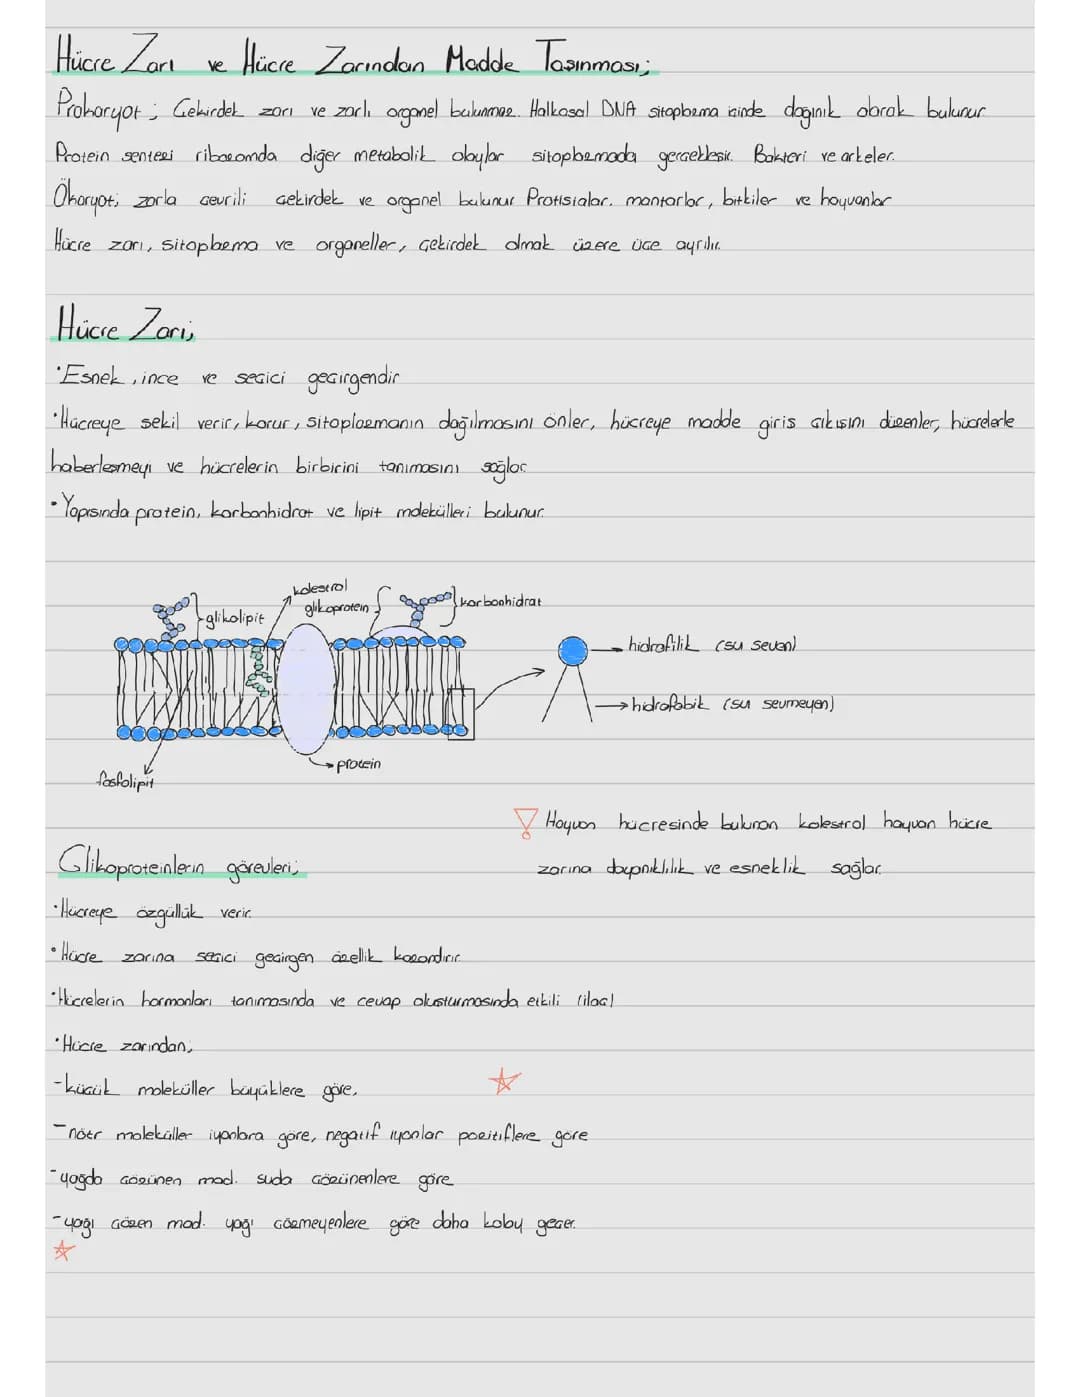 Hücre Zarı ve Hücre Zarından Madde Taşınması;
Prokaryot; Çekirdek zarı ve zarlı organel bulunmaz. Halkasal DNA sitoplazma içinde dağınık olarak bulunur
Protein sentezi ribozomda diğer metabolik olaylar sitoplazmada gerçekleşir. Bakteri ve arkeler.
Ökaryot; zarla çevrili çekirdek ve organel bulunur Protistalar. mantarlar, bitkiler ve hayvanlar
Hücre zarı, sitoplazma ve organeller, çekirdek olmak üzere üçe ayrılır.
Hücre Zarı;
•Esnek, ince ve seçici geçirgendir
•Hücreye şekil verir, korur, sitoplazmanın dağılmasını önler, hücreye madde giriş çıkışını düzenler, hücrelerle
haberleşmeyi ve hücrelerin birbirini tanımasını sağlar
•Yapısında protein, karbonhidrat ve lipit molekülleri bulunur.
kolestrol
glikoprotein
karbonhidrat
glikolipit
hidrofilik (su seven)
hidrofobik (su sevmeyen)
protein
fosfolipit
Hayvan hücresinde bulunan kolestrol hayvan hücre
zarına dayanıklılık ve esneklik sağlar.
Glikoproteinlerin görevleri;
•Hücreye özgüllük verir.
•Hücre zarına seçici geçirgen özellik kazandırır.
•Hücrelerin hormonları tanımasında ve cevap oluşturmasında etkili (ilaç)
•Hücre zarından;
-küçük moleküller büyüklere göre,
-nötr moleküller iyonlara göre, negatif iyonlar pozitiflere göre
-yağda çözünen mad. suda çözünenlere göre
-yağı çözen mad. yağı çözmeyenlere göre daha kolay geçer.